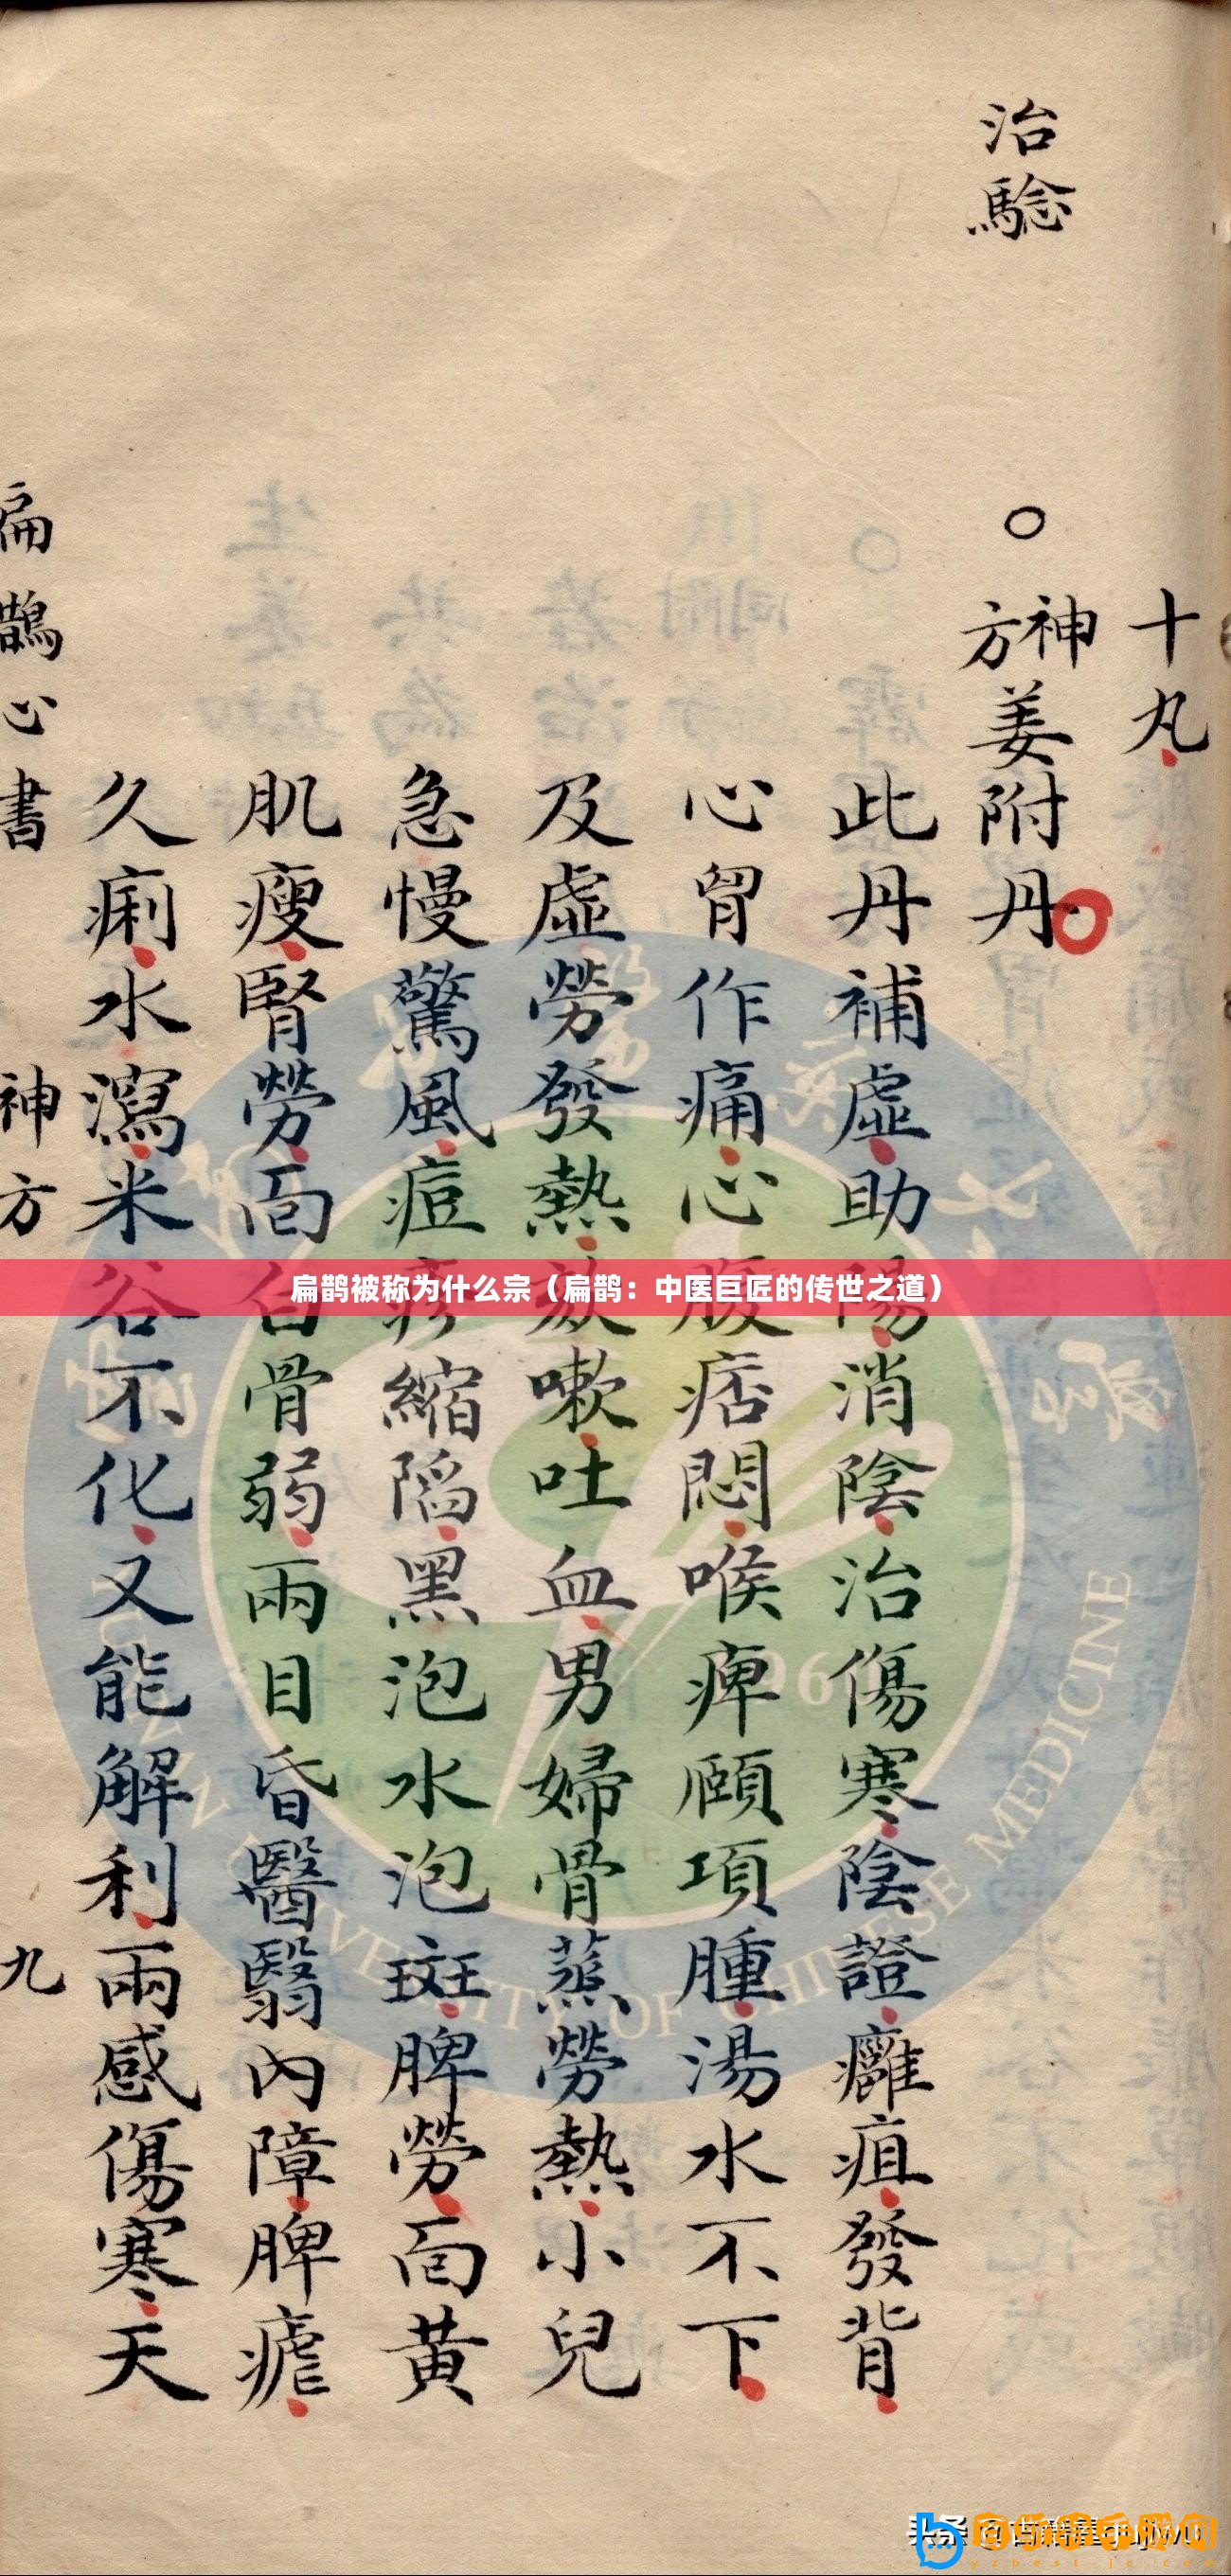 治驗
十丸
神方姜附丹
此丹補虛助陽消陰治傷寒陰證癰疽發背
心胃作痛心腹痞悶喉痺頤項腫湯水不下
及虛勞發熱欬嗽吐血男婦骨蒸勞熱小兒
急慢驚風痘疹縮陷黑泡水泡斑脾勞面黃
肌瘦腎勞面白骨弱兩目昏醫翳內障脾瘧
久痢水瀉米谷不化又能解利兩感傷寒天
扁鵲心書 神方 九
扁鹊被称为什么宗（扁鹊：中医巨匠的传世之道）
OF CHINESE MEDICINE
头条
yzbest-jc.com